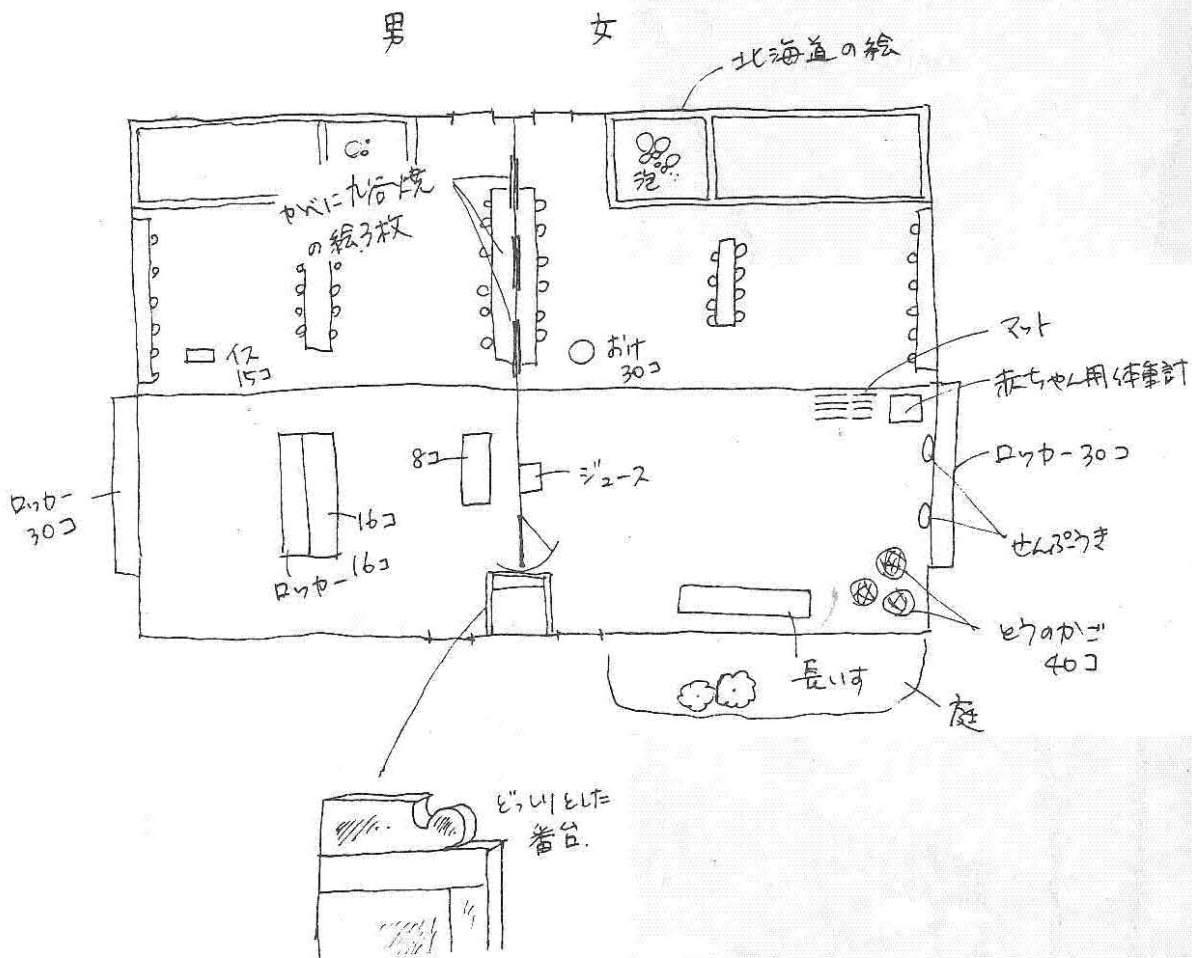 男
女
北海道の絵
泡
かべに九谷焼
の絵3枚
イス
15コ
おけ
30コ
マット
赤ちゃん用体重計
ロッカー
30コ
8コ
ジュース
ロッカー30コ
16コ
ロッカー16コ
せんぷうき
とうのかご
40コ
長いす
庭
どっしりとした
番台.